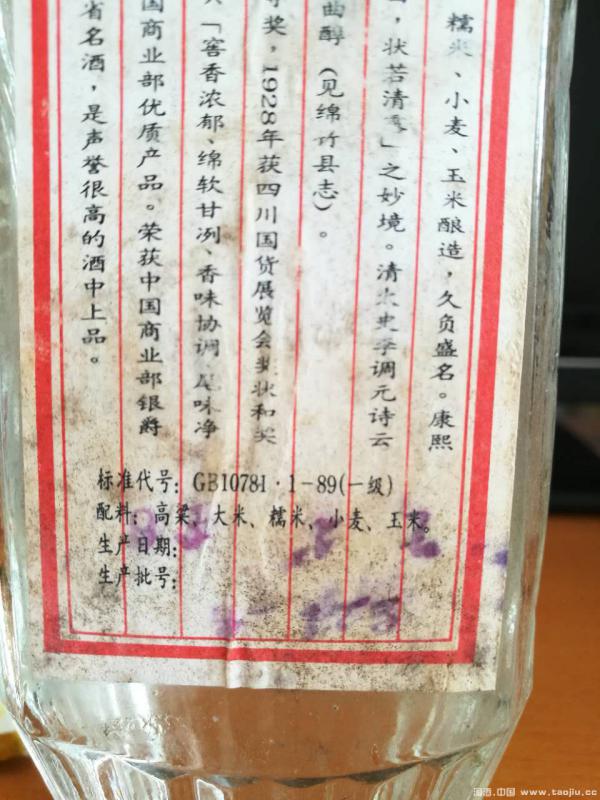 糯米、小麦、玉米酿造，久负盛名。康熙
，状若清露」之妙境。清太史李调元诗云
曲醇（见绵竹县志）。
等奖，1928年获四川国货展览会奖状和奖
「窖香浓郁、绵软甘冽、香味协调、尾味净
国商业部优质产品。荣获中国商业部银爵
省名酒，是声誉很高的酒中上品。
标准代号：GB10781·1-89(一级)
配料：高粱、大米、糯米、小麦、玉米。
生产日期：
生产批号：
淘酒.中国 www.taojiu.cc